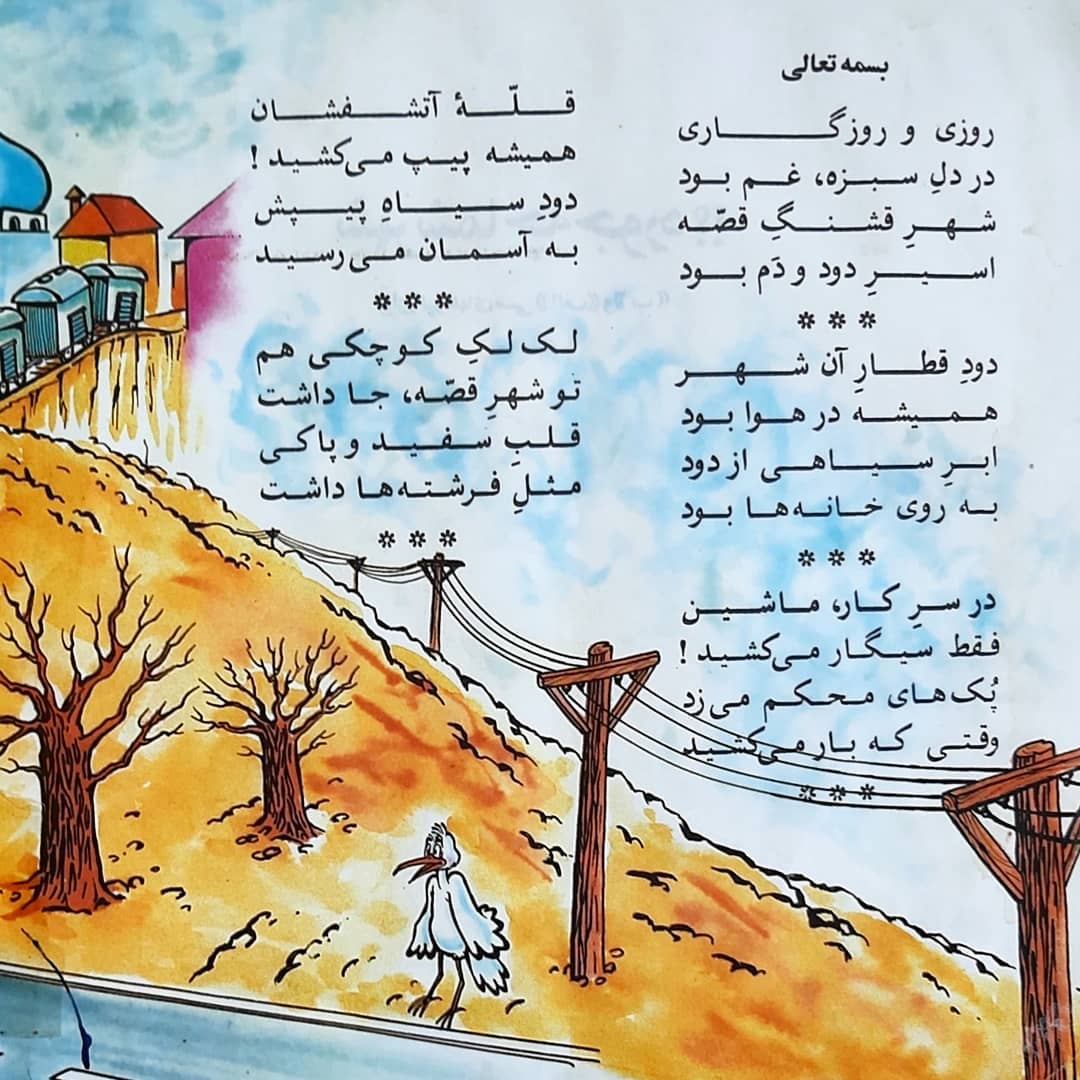 بسمه تعالی
روزی و روزگاری
در دلِ سبزه، غم بود
شهرِ قشنگِ قصّه
اسیرِ دود و دَم بود
***
دودِ قطارِ آن شهر
همیشه در هوا بود
ابرِ سیاهی از دود
به روی خانه‌ها بود
***
در سرِ کار، ماشین
فقط سیگار می‌کشید !
پُک‌های محکم می‌زد
وقتی که بار می‌کشید
***
قلّهٔ آتشفشان
همیشه پیپ می‌کشید !
دودِ سیاهِ پیپش
به آسمان می‌رسید
***
لک‌لکِ کوچکی هم
تو شهرِ قصّه، جا داشت
قلبِ سفید و پاکی
مثلِ فرشته‌ها داشت
***